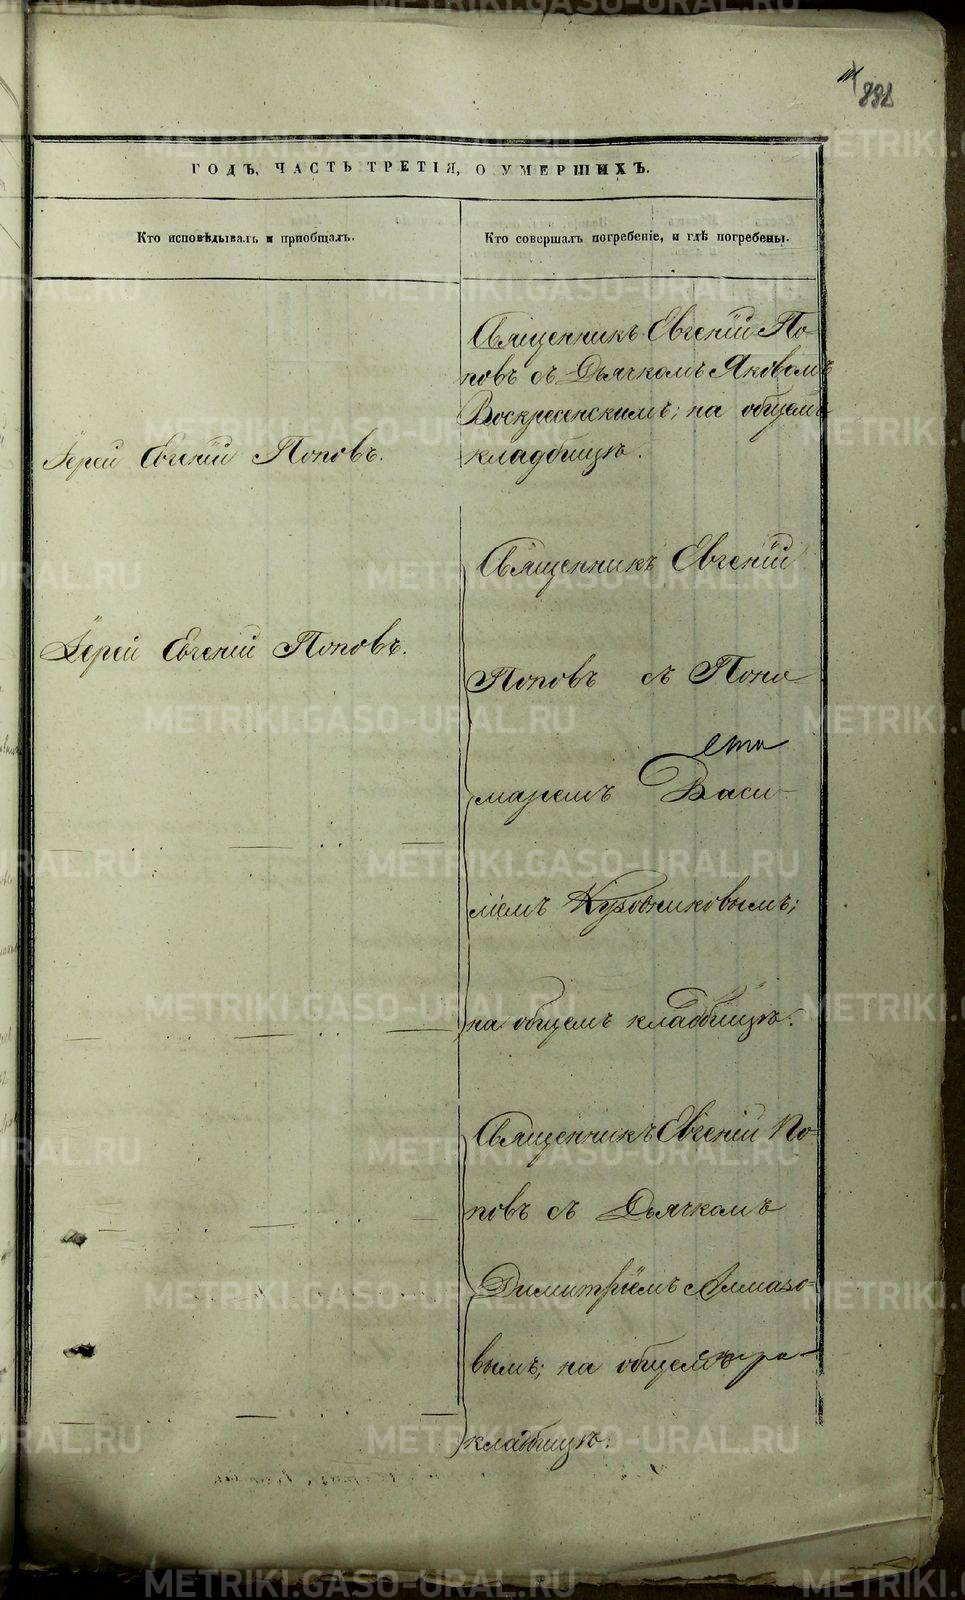 882
ГОДЪ, ЧАСТЬ ТРЕТІЯ, О УМЕРШИХЪ.
Кто исповѣдывалъ и пріобщалъ.
Кто совершалъ погребеніе, и гдѣ погребены.
Іерей Евгеній Поповъ.
Священникъ Евгеній По-
повъ съ Дьячкомъ Яковомъ
Воскресенскимъ; на общемъ
кладбищѣ.
Іерей Евгеній Поповъ.
Священникъ Евгеній
Поповъ съ Поно-
маремъ Васи-
ліемъ
на общемъ кладбищѣ.
Священникъ Евгеній По-
повъ съ Дьячкомъ
Димитріемъ Алмазо-
вымъ; на общемъ
кладбищѣ.
METRIKI.GASO-URAL.RU